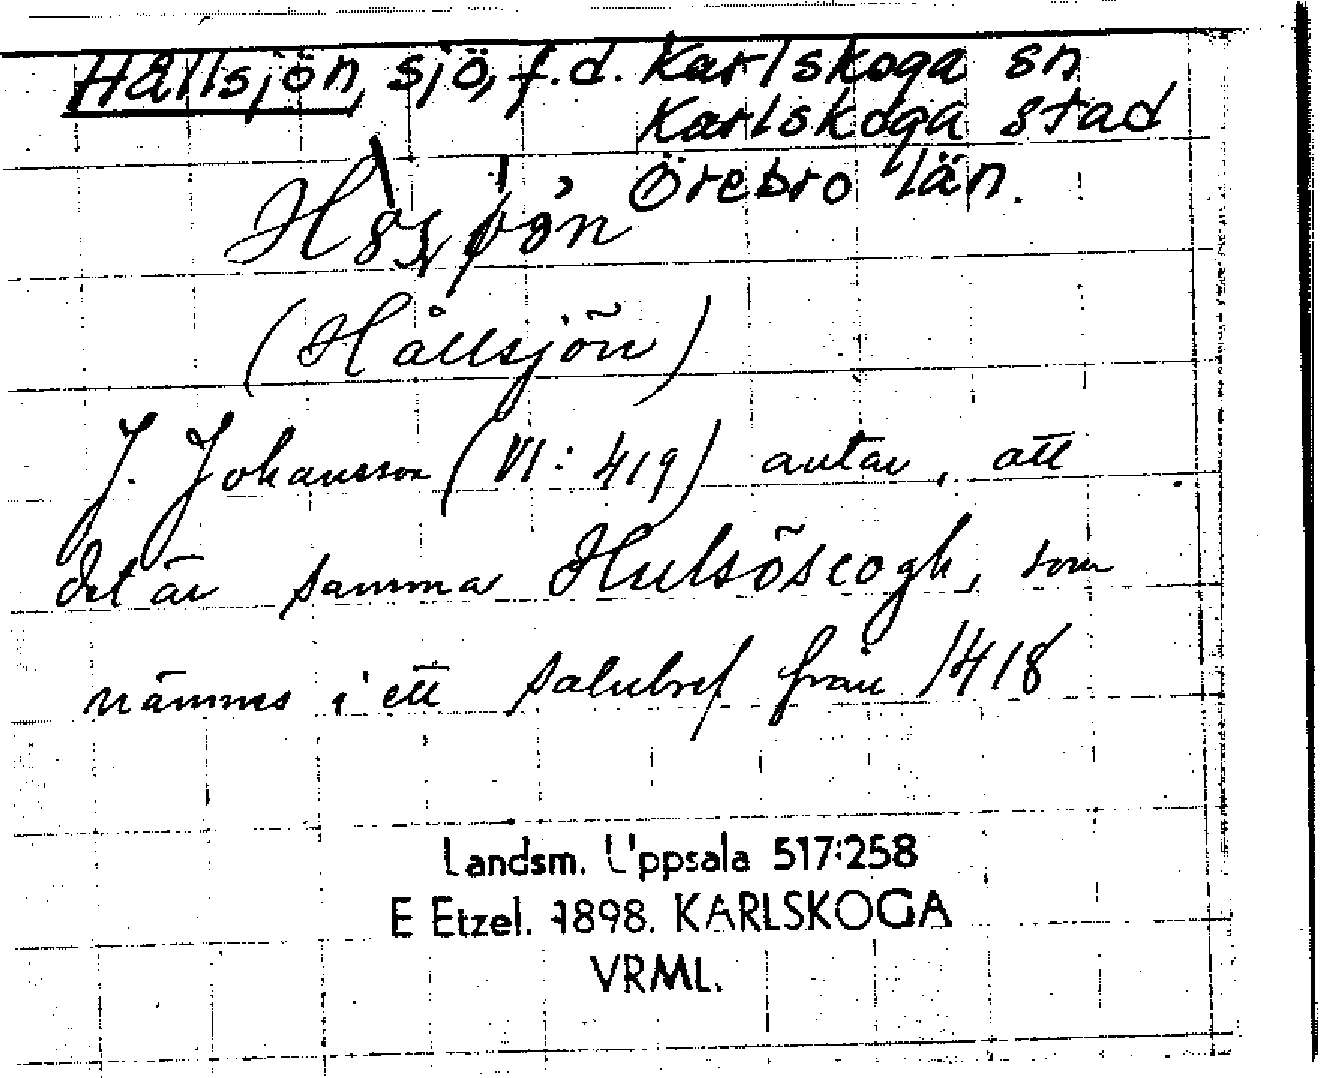 Hållsjön, sjö, f.d. Karlskoga sn
Karlskoga stad
Örebro län.
(Hållsjön)
J. Johansson (VI: 419) antar, att
det är samma Hulsöscogh, som
nämnes i ett salubref från 1418
Landsm. Uppsala 517:258
E Etzel. 1898. KARLSKOGA
VRML.